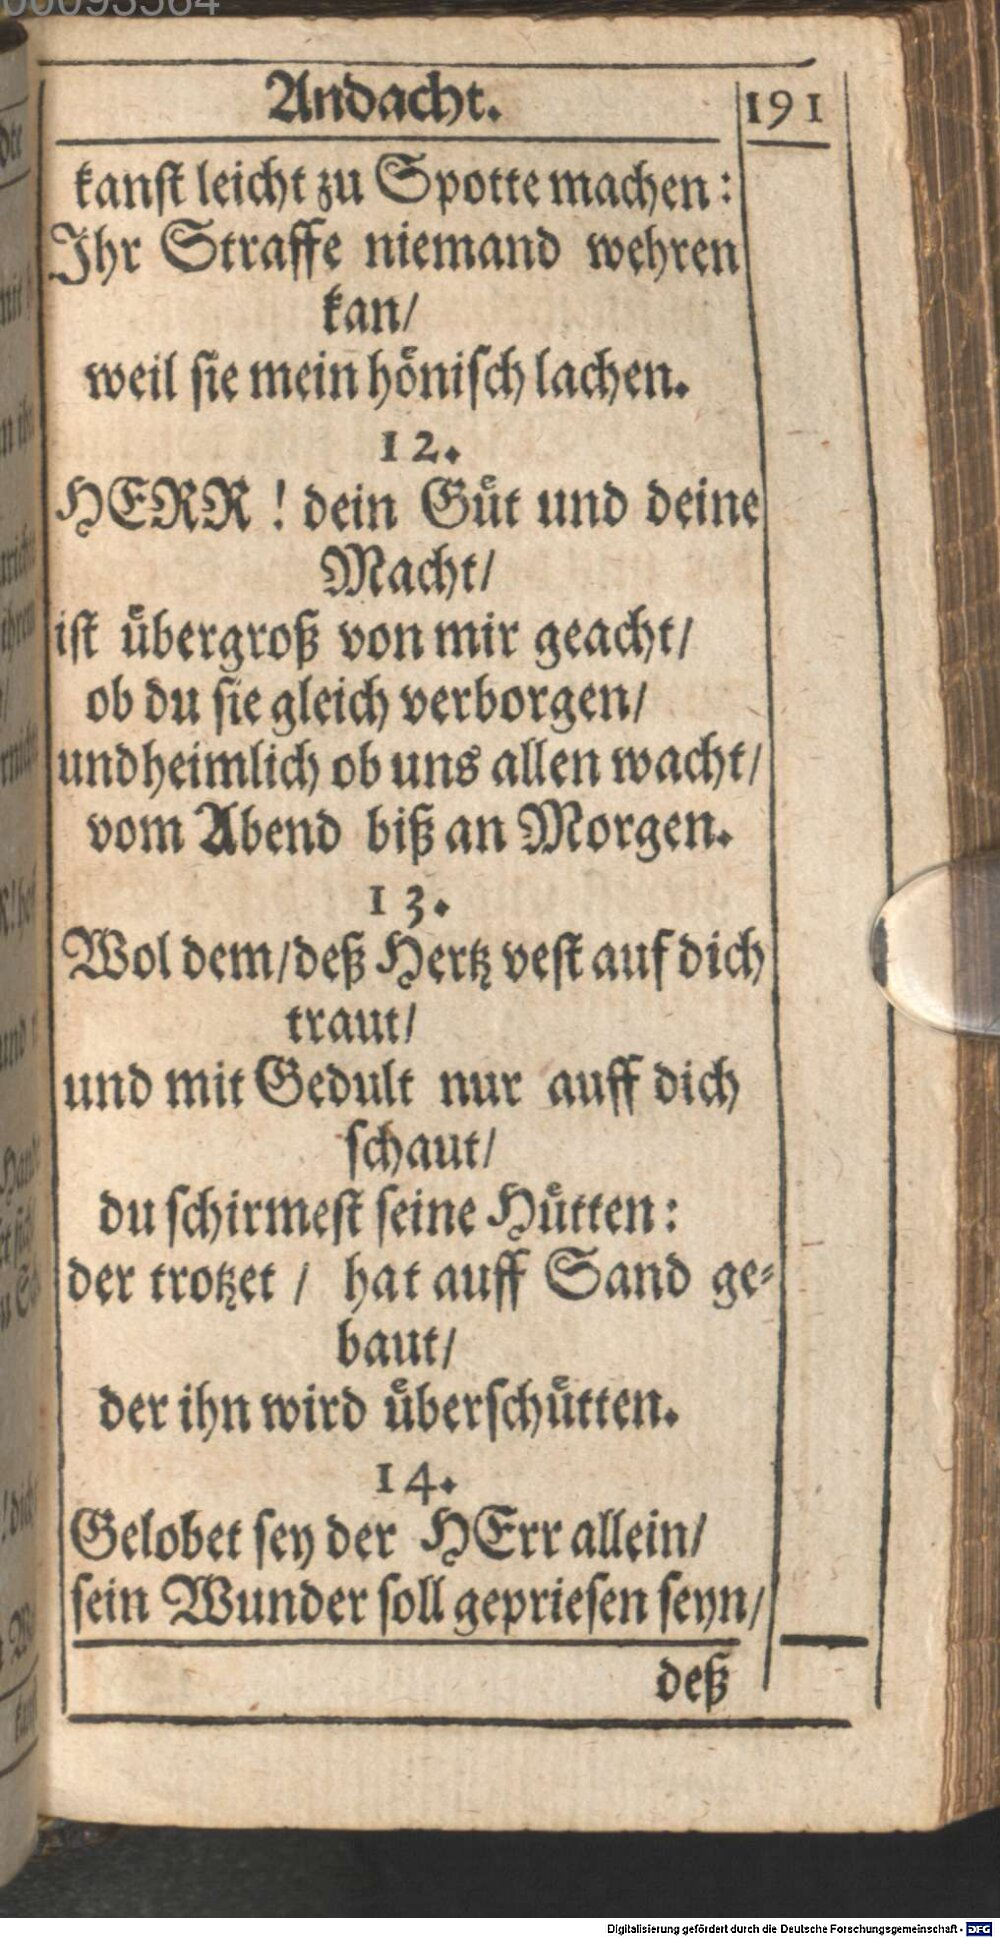 Andacht. 191
kanſt leicht zu Spotte machen:
Ihr Straffe niemand wehren
kan/
weil ſie mein hoͤniſch lachen.
12.
HERR! dein Guͤt und deine
Macht/
iſt uͤbergroß von mir geacht/
ob du ſie gleich verborgen/
und heimlich ob uns allen wacht/
vom Abend biß an Morgen.
13.
Wol dem/ deß Hertz veſt auf dich
traut/
und mit Gedult nur auff dich
ſchaut/
du ſchirmeſt ſeine Huͤtten:
der trotzet / hat auff Sand ge-
baut/
der ihn wird uͤberſchuͤtten.
14.
Gelobet ſey der HErr allein/
ſein Wunder ſoll geprieſen ſeyn/
deß
Digitalisierung gefördert durch die Deutsche Forschungsgemeinschaft - DFG